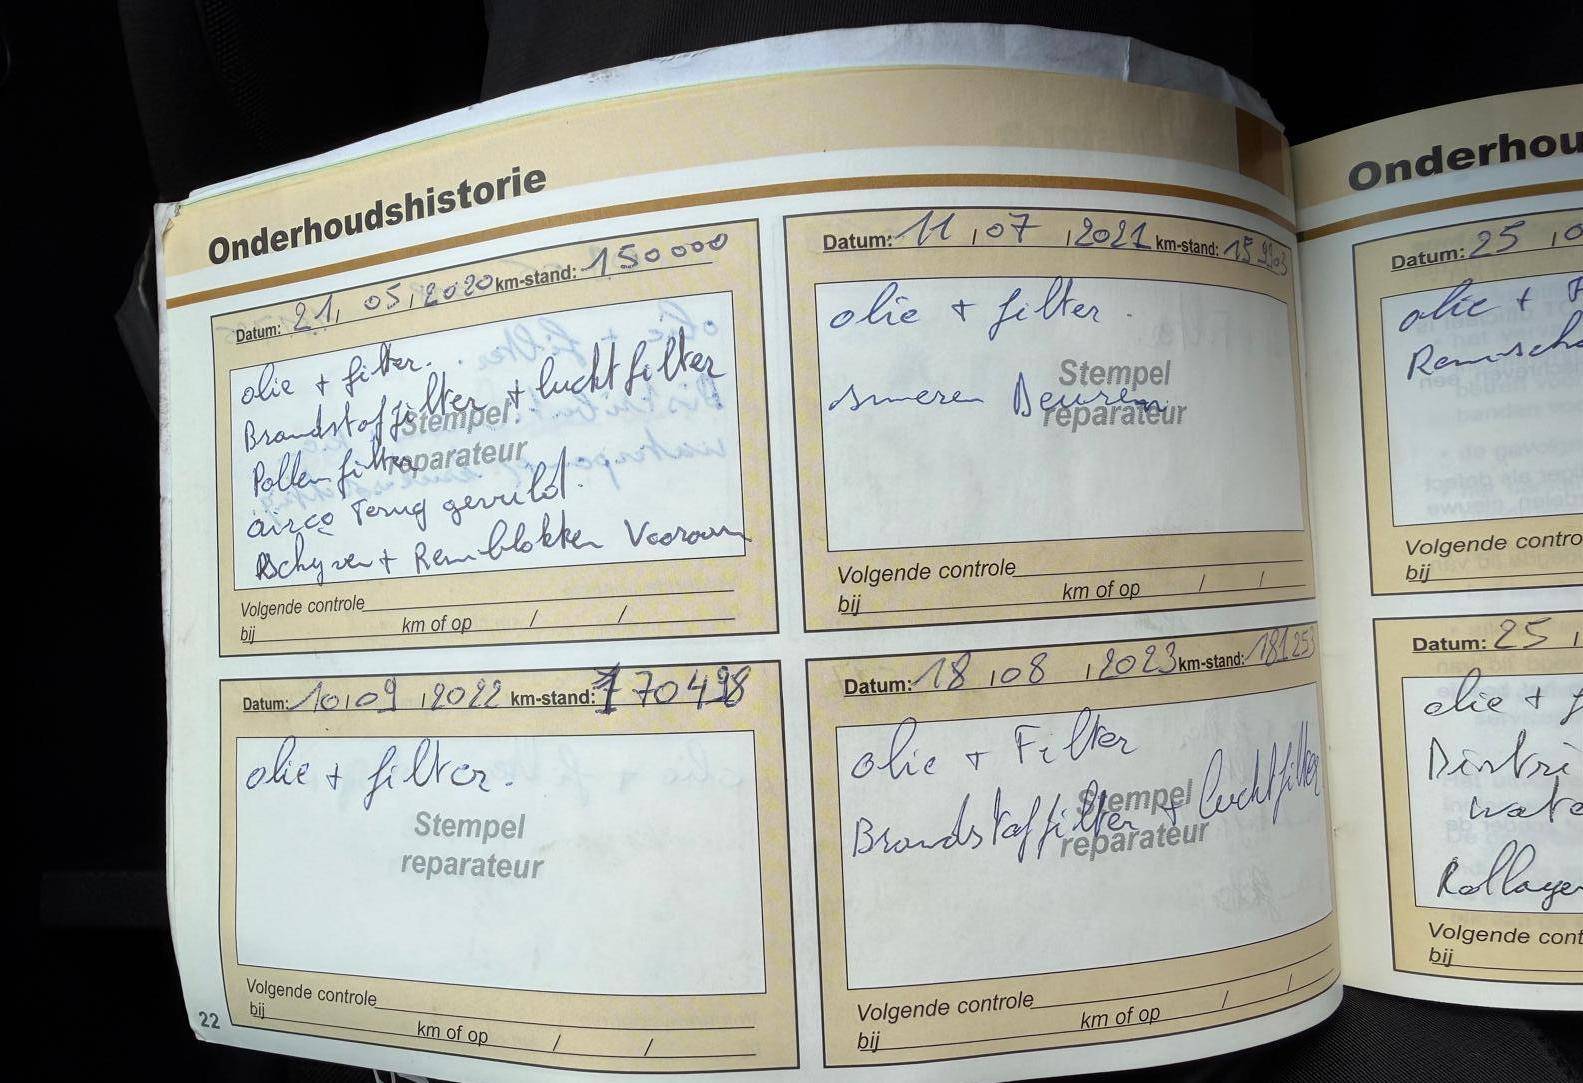 Onderhoudshistorie
Datum: 21, 05, 2020 km-stand: 150000
olie + filter.
Brandstoffilter + luchtfilter
Pollenfilter
airco Terug gevuld.
Schyven + Remblokken Vooraan
Stempel
reparateur
Volgende controle
bij km of op / /
Datum: 11, 07, 2021 km-stand:
olie + filter.
smeren Deuren
Stempel
reparateur
Volgende controle
bij km of op / /
Datum: 10, 09, 2022 km-stand: 170498
olie + filter.
Stempel
reparateur
Volgende controle
bij km of op / /
22
Datum: 18, 08, 2023 km-stand: 181253
olie + Filter
Brandstoffilter + luchtfilter
Stempel
reparateur
Volgende controle
bij km of op / /
Onderhou
Datum: 25
olie + F
Remsch
Volgende contro
bij
Datum: 25
olie + f
Distri
wate
Rollager
Volgende cont
bij